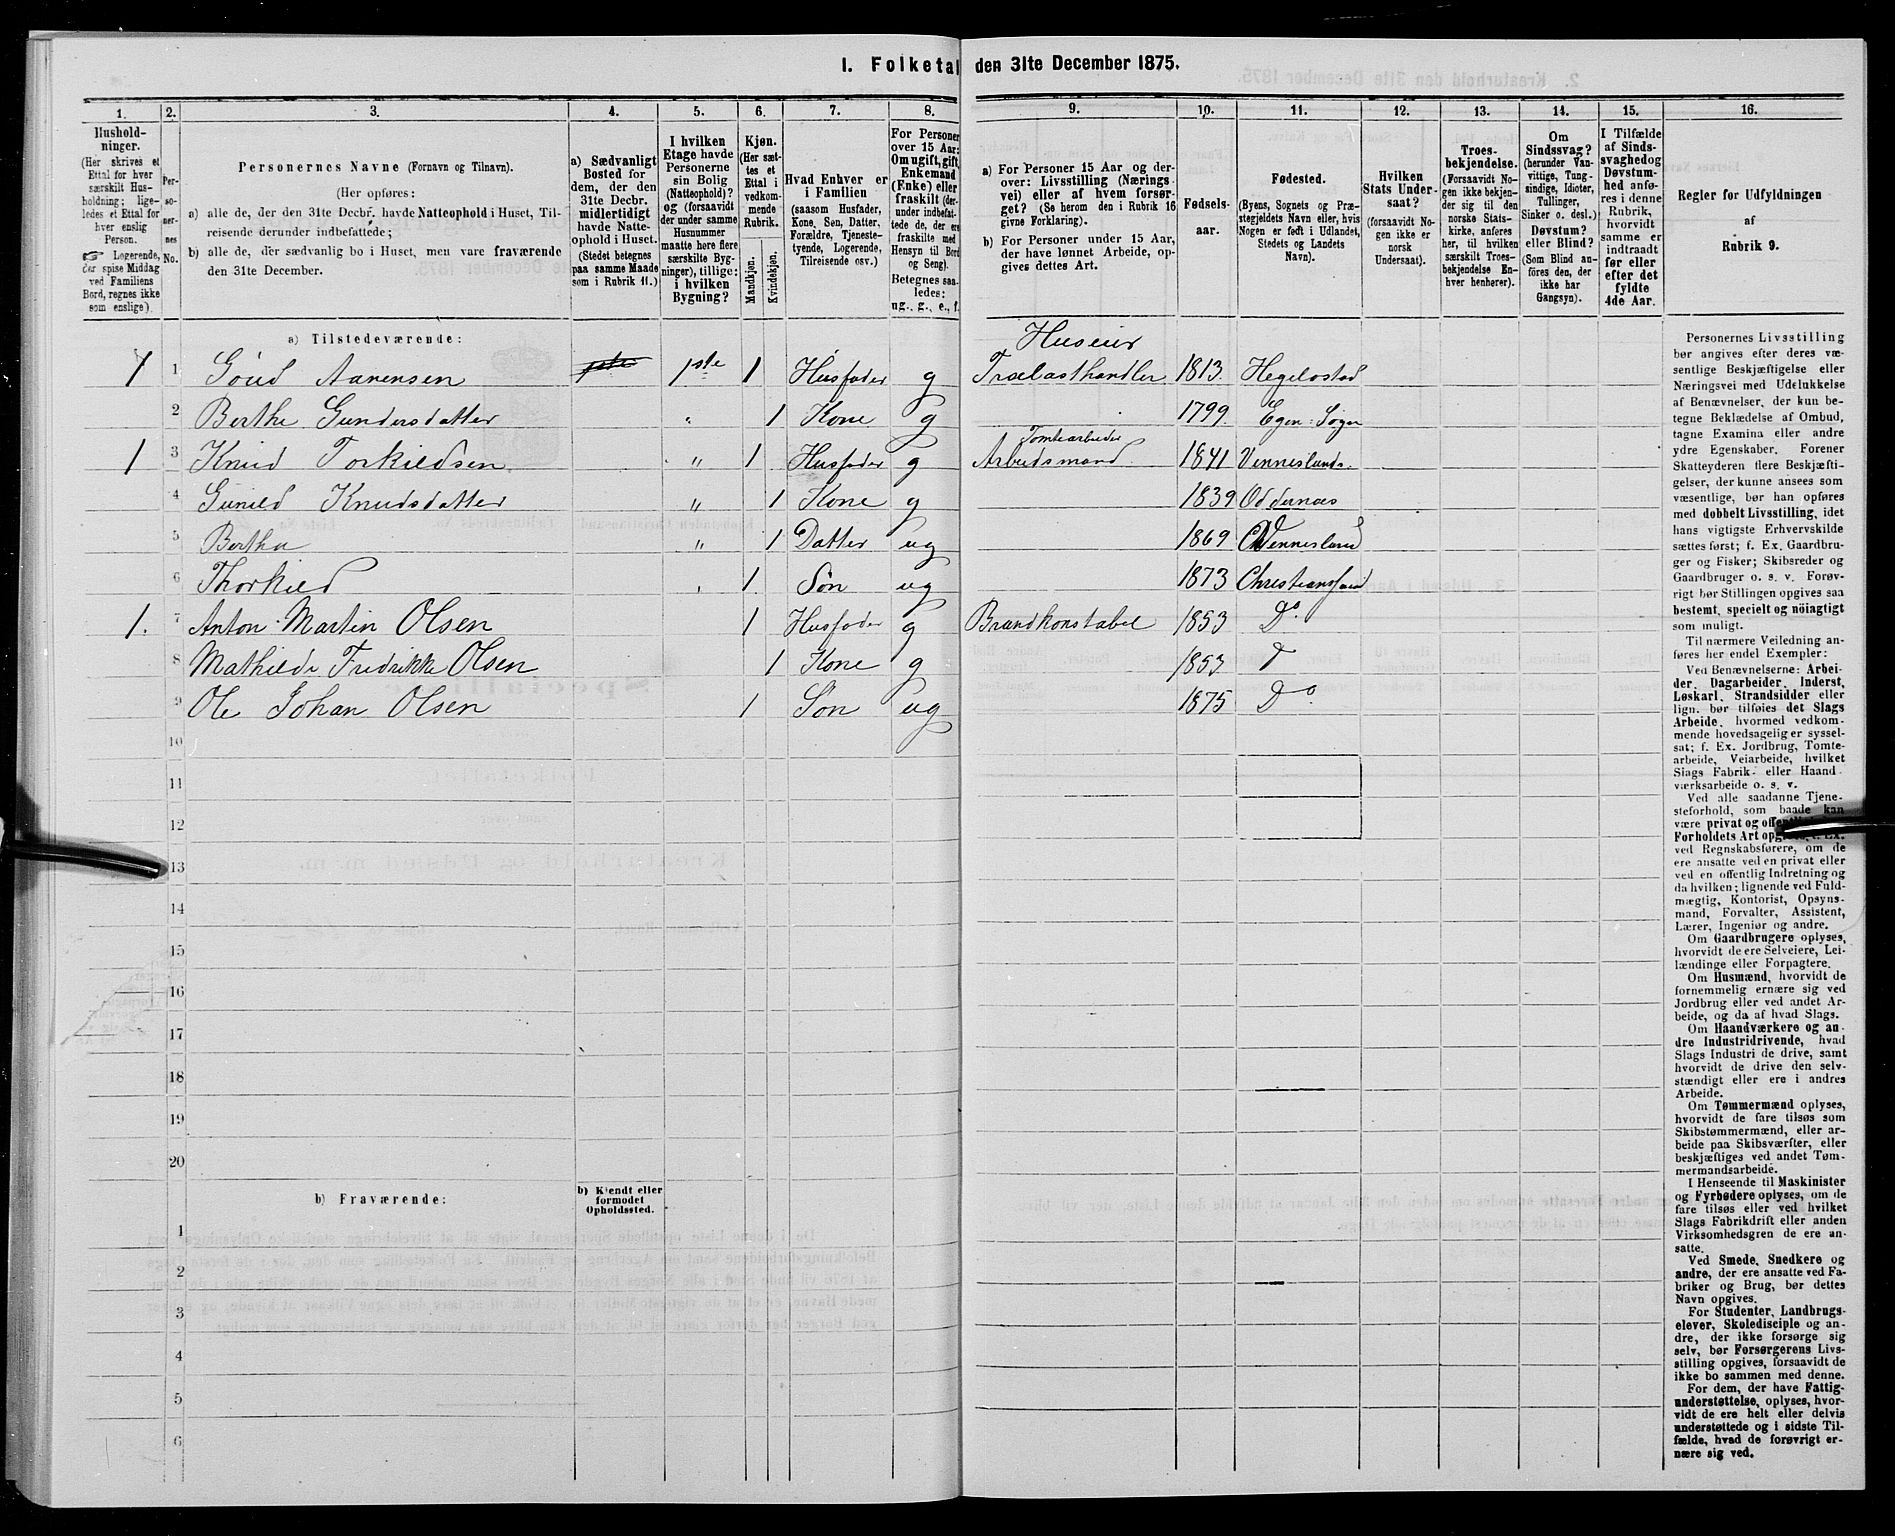 1. Folketal den 31te December 1875.
1. 2. 3. 4. 5. 6. 7. 8. 9. 10. 11. 12. 13. 14. 15. 16.
Hushold-
ninger.
(Her skrives et
Ettal for hver
særskilt Hus-
holdning; lige-
ledes et Ettal for
hver enslig
Person.
☞ Logerende,
der spise Middag
ved Familiens
Bord, regnes ikke
som enslige).
Per-
so-
ner-
nes
No.
Personernes Navne (Fornavn og Tilnavn).
(Her opføres:
a) alle de, der den 31te Decbr. havde Natteophold i Huset, Til-
reisende derunder indbefattede;
b) alle de, der sædvanlig bo i Huset, men vare fraværende
den 31te December.
a) Sædvanligt
Bosted for
dem, der den
31te Decbr.
midlertidigt
havde Natte-
ophold i Huset.
(Stedet betegnes
paa samme Maade
som i Rubrik 11.)
I hvilken
Etage havde
Personerne
sin Bolig
(Natteophold)?
og (forsaavidt
der under samme
Husnummer
maatte høre flere
særskilte Byg-
ninger), tillige:
i hvilken
Bygning?
Kjøn.
(Her sæt-
tes et
Ettal i
vedkom-
mende
Rubrik.)
Mandkjøn.
Kvindekjøn.
Hvad Enhver er
i Familien
(saasom Husfader,
Kone, Søn, Datter,
Forældre, Tjeneste-
tyende, Logerende,
Tilreisende osv.)
For Personer
over 15 Aar:
Om ugift, gift,
Enkemand
(Enke) eller
fraskilt (der-
under indbefat-
tede de, der ere
fraskilte med
Hensyn til Bord
og Seng).
Betegnes saa-
ledes:
ug., g., e., f.
a) For Personer 15 Aar og der-
over: Livsstilling (Nærings-
vei) eller af hvem forsør-
get? (Se herom den i Rubrik 16
givne Forklaring).
b) For Personer under 15 Aar,
der have lønnet Arbeide, op-
gives dettes Art.
Fødsels-
aar.
Fødested.
(Byens, Sognets og Præ-
stegjeldets Navn eller, hvis
Nogen er født i Udlandet,
Stedets og Landets
Navn).
Hvilken
Stats Under-
saat?
(forsaavidt No-
gen ikke er
norsk
Undersaat).
Troes-
bekjendelse.
(Forsaavidt No-
gen ikke bekjen-
der sig til den
norske Stats-
kirke, anføres
her, til hvilken
særskilt Troes-
bekjendelse En-
hver henhører).
Om
Sindssvag?
(herunder Van-
vittige, Tung-
sindige, Idioter,
Tullinger,
Sinker o. desl.)
Døvstum?
eller Blind?
(Som Blind an-
føres den, der
ikke har
Gangsyn).
I Tilfælde
af Sinds-
svaghed og
Døvstum-
hed anfø-
res i denne
Rubrik,
hvorvidt
samme er
indtraadt
før eller
efter det
fyldte
4de Aar.
Regler for Udfyldningen
af
Rubrik 9.
a) Tilstedeværende:
Huseier
1 1 Gøud Aanensen 1ste 1ste 1 Husfader g Trælasthandler 1813. Hegelostad
2 Berthe Gundersdatter " 1 Kone g 1799. Egen: Sogn
Tomtearbeider
1 3 Knud Torkildsen " 1 Husfader g Arbeidsmand 1841 Venneslands.
4 Gunild Knudsdatter " 1 Kone g 1839 Oddernæs
5 Bertha " 1 Datter ug 1869 Vennesland
6 Thorkild " 1 Søn ug 1873 Christianssand
1. 7 Anton Martin Olsen 1 Husfader g Brandkonstabel 1853 Do.
8 Mathilde Fredrikke Olsen 1 Kone g 1853.
9 Ole Johan Olsen 1 Søn ug 1875 Do.
10
11
12
13
14
15
16
17
18
19
20
b) Fraværende:
b) Kjendt eller
formodet
Opholdssted.
1
2
3
4
5
6
Personernes Livsstilling
bør angives efter deres væ-
sentlige Beskjæftigelse eller
Næringsvei med Udelukkelse
af Benævnelser, der kun be-
tegne Beklædelse af Ombud,
tagne Examina eller andre
ydre Egenskaber. Forener
Skatteyderen flere Beskjæfti-
gelser, der kunne ansees som
væsentlige, bør han opføres
med dobbelt Livsstilling, idet
hans vigtigste Erhvervskilde
sættes først; f. Ex. Gaardbru-
ger og Fisker; Skibsreder og
Gaardbruger o. s. v. Forøv-
rigt bør Stillingen opgives saa
bestemt, specielt og nöiagtigt
som muligt.
Til nærmere Veiledning an-
føres her endel Exempler:
Ved Benævnelserne: Arbei-
der, Dagarbeider, Inderst,
Løskarl, Strandsidder eller
lign. bør tilføies det Slags
Arbeide, hvormed vedkom-
mende hovedsagelig er syssel-
sat; f. Ex. Jordbrug, Tomte-
arbeide, Veiarbeide, hvilket
Slags Fabrik- eller Haand-
værksarbeide o. s. v.
Ved alle saadanne Tjene-
steforhold, som baade kan
være privat og offentligt, bør
Forholdets Art opgives, f. Ex.
ved Regnskabsførere, om de
ere ansatte ved en privat eller
ved en offentlig Indretning og
da hvilken; lignende ved Fuld-
mægtig, Kontorist, Opsyns-
mand, Forvalter, Assistent,
Lærer, Ingeniør og andre.
Om Gaardbrugere oplyses,
hvorvidt de ere Selveiere, Lei-
lændinge eller Forpagtere.
Om Husmænd, hvorvidt de
fornemmelig ernære sig ved
Jordbrug eller ved andet Ar-
beide, og da af hvad Slags.
Om Haandværkere og an-
dre Industridrivende, hvad
Slags Industri de drive, samt
hvorvidt de drive den selv-
stændigt eller ere i andres
Arbeide.
Om Tømmermænd oplyses,
hvorvidt de fare tilsøs som
Skibstømmermænd, eller ar-
beide paa Skibsværfter, eller
beskjæftiges ved andet Tøm-
mermandsarbeide.
I Henseende til Maskinister
og Fyrbødere oplyses, om de
fare tilsøs eller ved hvilket
Slags Fabrikdrift eller anden
Virksomhedsgren de ere an-
satte.
Ved Smede, Snedkere og
andre, der ere ansatte ved Fa-
briker og Brug, bør dettes
Navn opgives.
For Studenter, Landbrugs-
elever, Skoledisciple og an-
dre, der ikke forsørge sig
selv, bør Forsørgerens Livs-
stilling opgives, forsaavidt de
ikke bo sammen med denne.
For dem, der have Fattig-
understøttelse, oplyses, hvor-
vidt de ere helt eller delvis
understøttede og i sidste Til-
fælde, hvad de forøvrigt er-
nære sig ved.